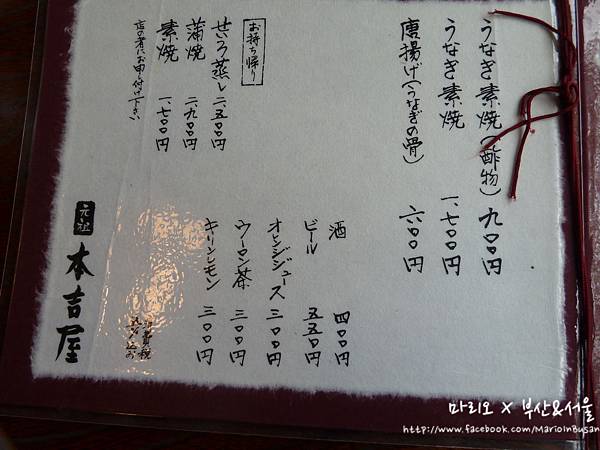 うなぎ素焼(酢物) 九〇〇円
うなぎ素焼 一、七〇〇円
唐揚げ(うなぎの骨) 六〇〇円
酒 四〇〇円
ビール 五五〇円
オレンジジュース 三〇〇円
ウーロン茶 三〇〇円
キリンレモン 三〇〇円
お持ち帰り
せいろ蒸し 二、五〇〇円
蒲焼 二、九〇〇円
素焼 一、七〇〇円
店の者にお申し付け下さい
消費税
込み
元祖
本吉屋
마리오 X 부산&서울
http://www.facebook.com/MarioInBusan